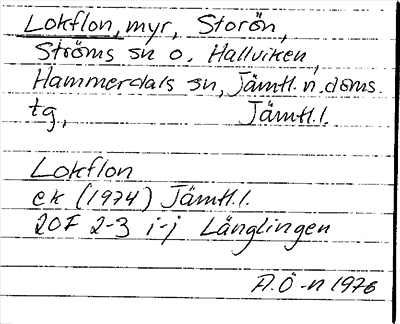 Lokflon, myr, Storön,
Ströms sn o. Hallviken,
Hammerdals sn, Jämtl. n. doms.
tg, Jämtl. l.
Lokflon
ek (1974) Jämtl. l.
20F 2-3 i-j Länglingen
A.Ö-n 1976